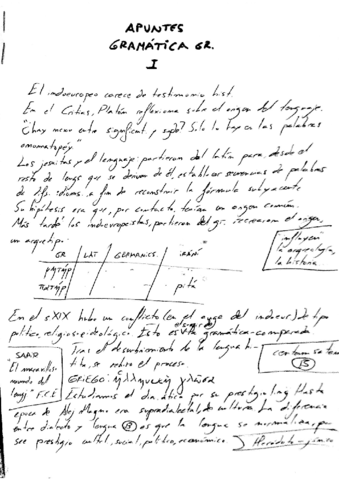 APUNTES
GRAMÁTICA GR.
I
El indoeuropeo carece de testimonio hist.
En el Critias, Platón reflexiona sobre el origen del lenguaje.
"¿hay nexo entre significant. y sgdo? Solo lo hay en las palabras
onomatopéy."
Los jesuitas, y el lenguaje: partieron del latín para, desde el
resto de lengs que se derivan de él, establecer secuencias de palabras
de difs. idioms. a fin de reconstruir la fórmula subyacente
Su hipótesis era que, por contacto, tenían un origen común.
Más tarde los indoeuropeistas, partieron del gr. recrearon el origen,
un arquetipo:
GR | LAT | GERMANICS.
influyen
la arqueología,
la historia
En el s XIX hubo un conflicto (en el auge del indoeur.) de tipo
político, religioso e ideológico. Esto es la gramática comparada
Tras el descubrimiento de la lengua
se rehizo el proceso.
centum satem
B
SAAR
"El
mundo del
leng." F.C.E
GRIEGO:
Estudiamos el dia. ática por su prestigio leng. Hasta
época de Alej Magno era supradialectal, de cultura. La diferencia
entre dialecto y lengua B es que la lengua se normaliza, por
ser prestigio cultal, social, político, económico.
Herodoto - jónico